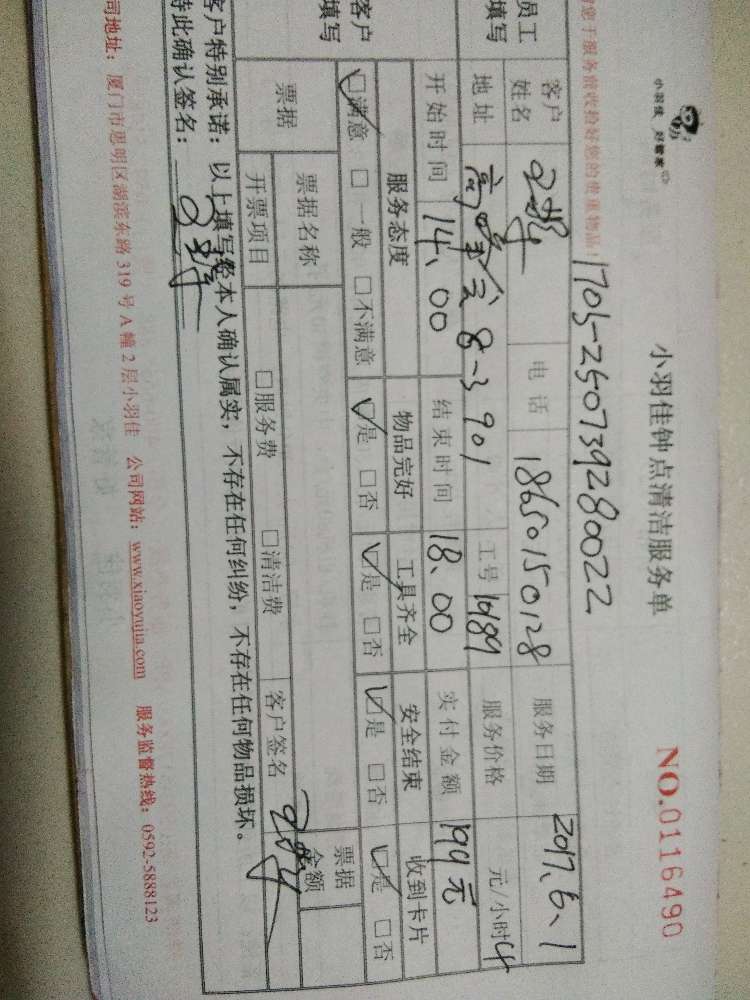 小羽佳 好管家
小羽佳钟点清洁服务单
NO.0116490
1705-250739280022
您于服务前收捡好您的贵重物品!
员工
填写
客户
姓名
电话
18650150128
服务日期
2017.6.1
地址
8-3 901
工号
10189
服务价格
元/小时
开始时间
14.00
结束时间
18.00
实付金额
194元
客户
填写
服务态度
物品完好
工具齐全
安全结束
收到卡片
☑满意 □一般 □不满意
☑是 □否
☑是 □否
☑是 □否
☑是 □否
票据
票据名称
票据
金额
开票项目
□服务费
□清洁费
客户签名
客户特别承诺:以上填写经本人确认属实,不存在任何纠纷,不存在任何物品损坏。
特此确认签名:
司地址:厦门市思明区湖滨东路319号A幢2层小羽佳 公司网站:www.xiaoyujia.com 服务监督热线:0592-5888123